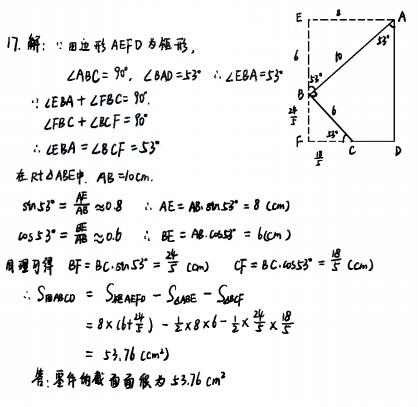 17. 解: ∵ 四边形 AEFD 为矩形,
∠ABC = 90°, ∠BAD = 53° ∴ ∠EBA = 53°
∵ ∠EBA + ∠FBC = 90°.
∠FBC + ∠BCF = 90°
∴ ∠EBA = ∠BCF = 53°
在 Rt△ABE中, AB = 10cm.
sin53° = AE/AB ≈ 0.8 ∴ AE = AB·sin53° = 8 (cm)
cos53° = BE/AB ≈ 0.6 ∴ BE = AB·cos53° = 6 (cm)
同理可得 BF = BC·sin53° = 24/5 (cm) CF = BC·cos53° = 18/5 (cm)
∴ S四ABCD = S矩AEFD − S△ABE − S△BCF
= 8×(6+24/5) − 1/2×8×6 − 1/2×24/5×18/5
= 53.76 (cm²)
答: 零件的截面面积为 53.76 cm²
E 8 A
53°
6 10
53°
B
24/5 6
53°
F C D
18/5